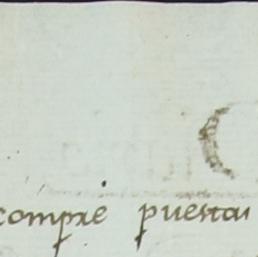 compre puestai